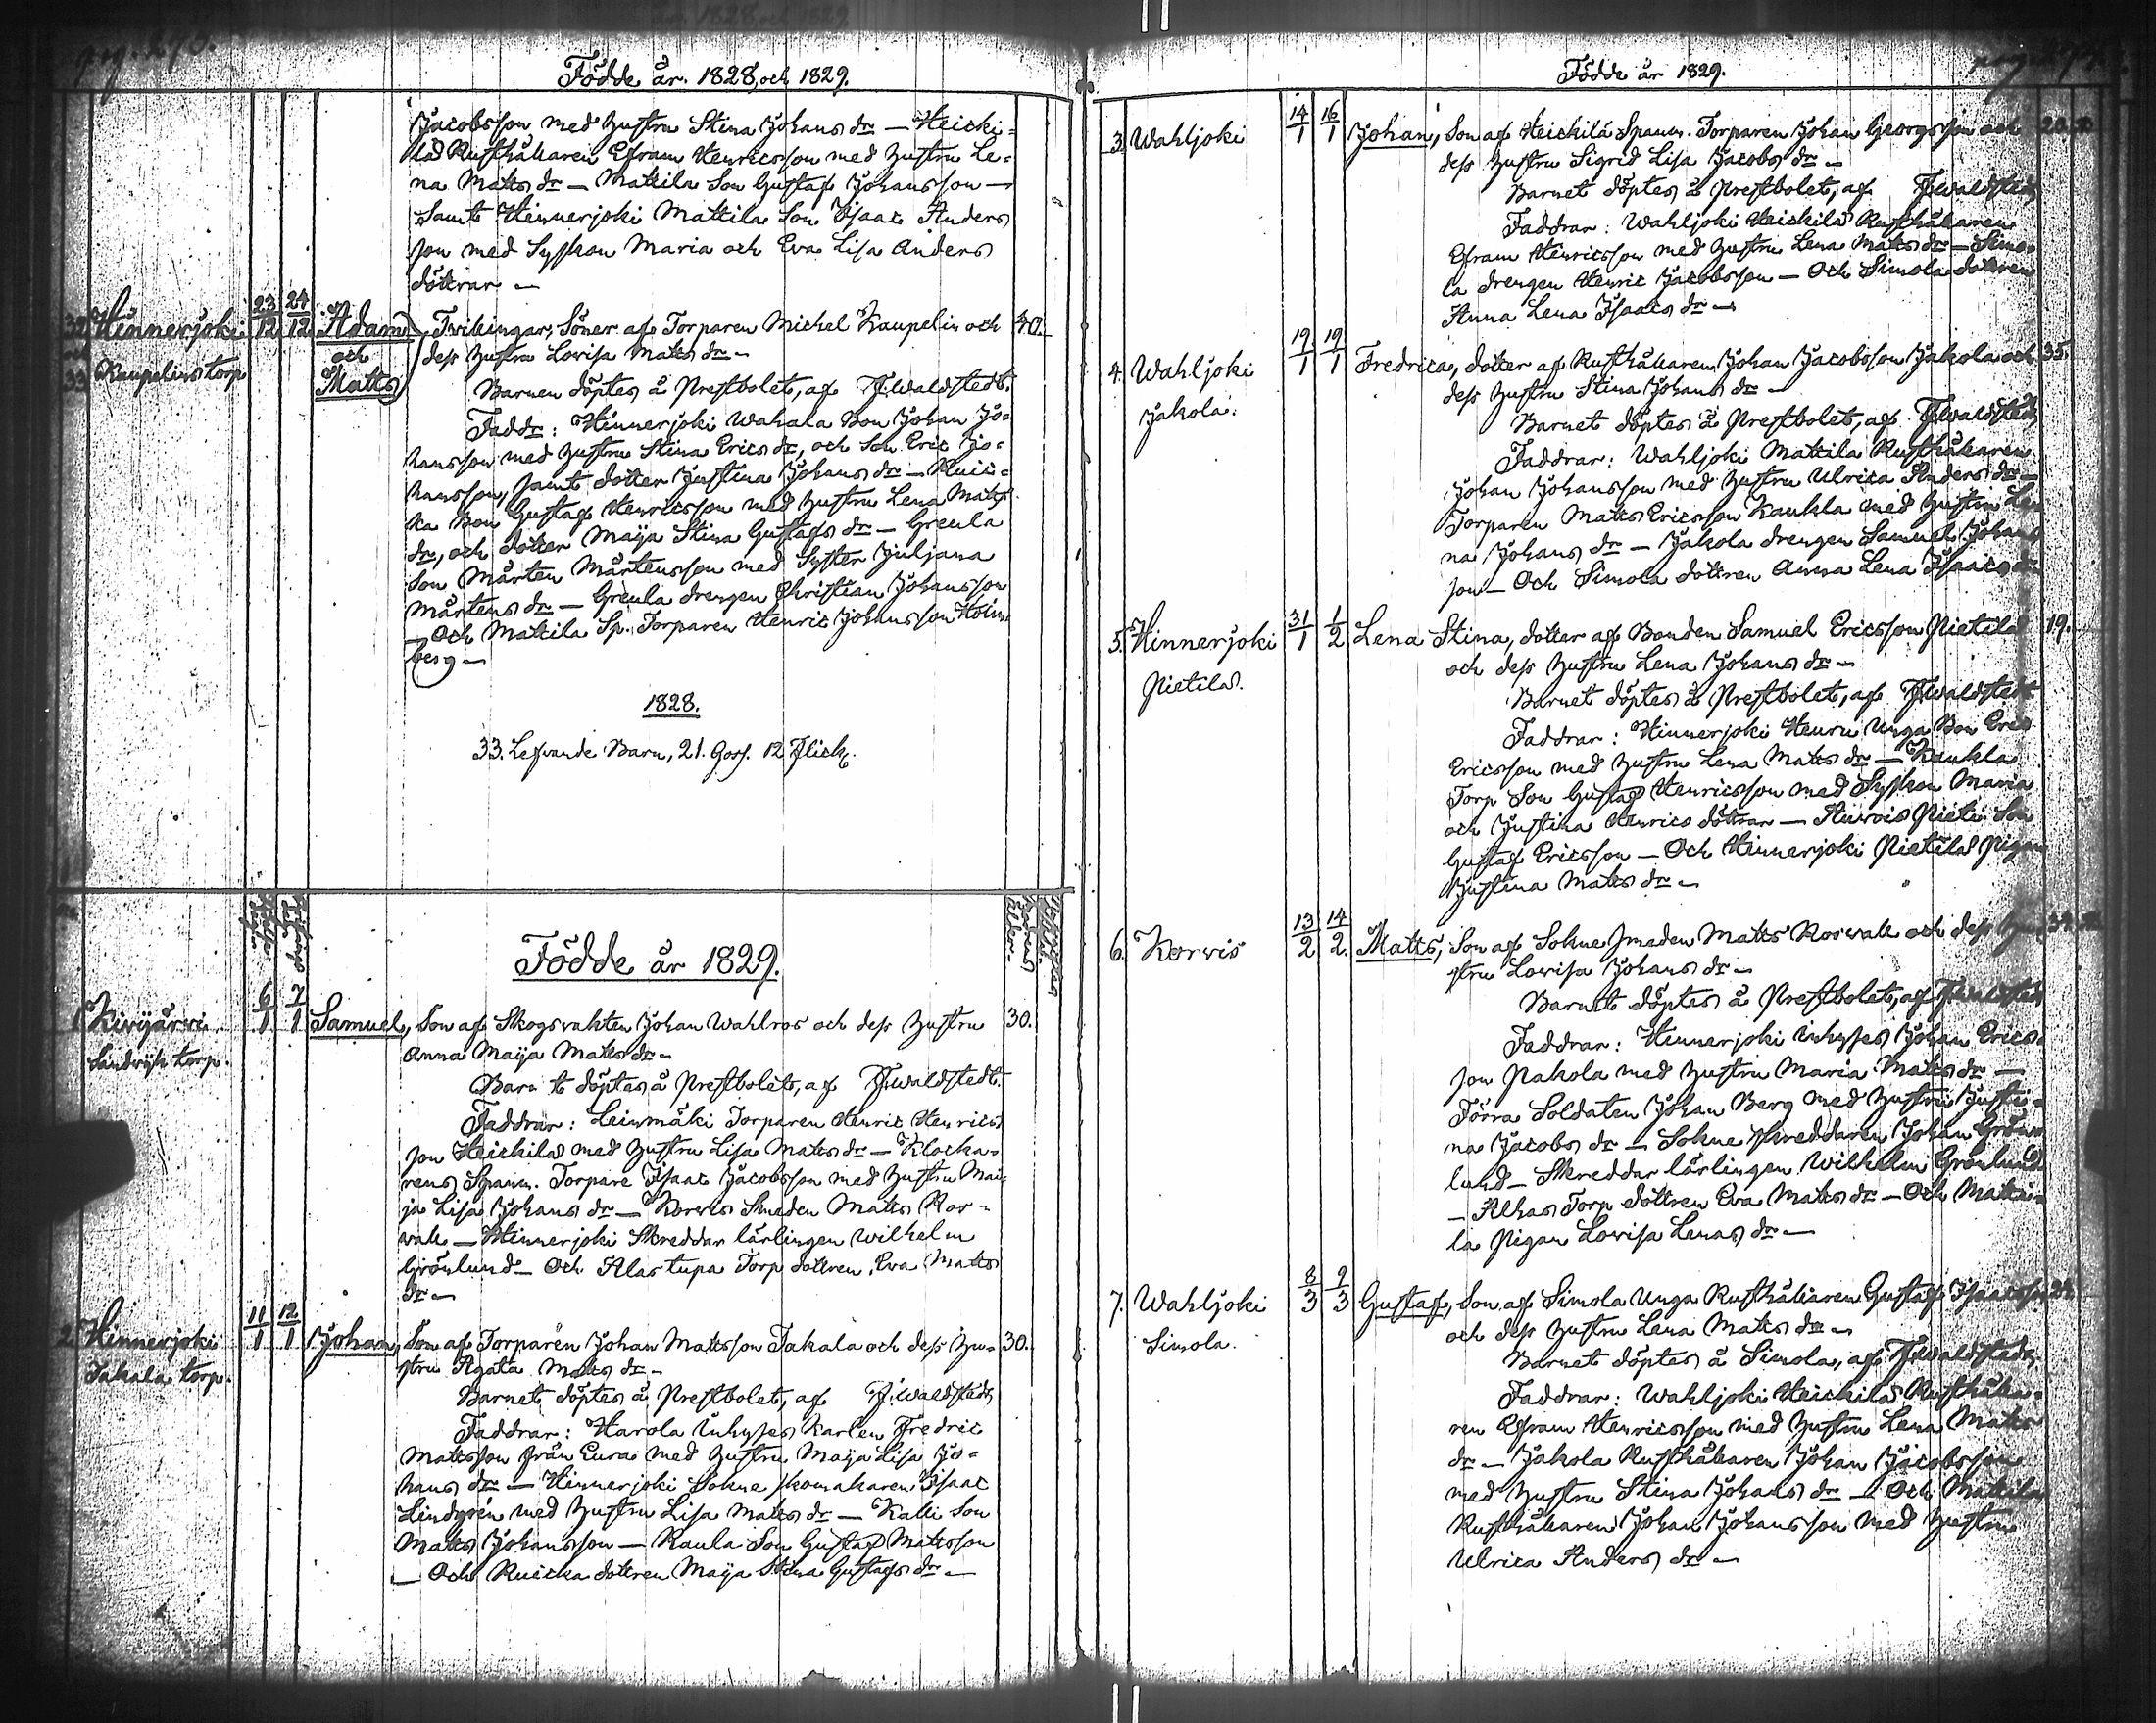 pag. 275.
Födde år 1828, och 1829.
Jacobsson med hustru Stina Johans dr — Heicki=
lä Rusthållaren Efraim Henricsson med hustru Le=
na Matts dr — Mattila Son Gustaf Johansson —
Samt Hinnerjoki Mattila Son Isaac Anders
son med Syskon Maria och Eva Lisa Anders
döttrar —
32 Hinnerjoki 23/12 24/12 Adam Tvillingar, Söner af Torparen Michel Kaupelin och 40.
och Kaupelins torp och dess hustru Lovisa Matts dr —
33 Matts
Barnen döptes å Prestbolet, af F. Waldstedt.
Faddr: Hinnerjoki Wahala Bon Johan Jo=
hansson med hustru Stina Erics dr, och Son Eric Jo=
hansson, samt dotter Justina Johans dr — Ruici=
ka Bon Gustaf Henricsson med hustru Lena Matts
dr, och dotter Maija Stina Gustafs dr — Greula
Son Mårten Mårtensson med Syster Juljana
Mårtens dr — Greula drengen Christian Johansson
— Och Mattila Sp. Torparen Henric Johansson Holm
berg —
1828.
33. Lefvande Barn, 21. Goss. 12 Flick.
Födde år 1829.
1 Kivijärvi 6/1 7/1 Samuel, Son af Skogsvakten Johan Wahlros och dess hustru 30.
Landvijk torp. Anna Maija Matts dr —
Barnet döptes å Prestbolet, af F. Waldstedt.
Faddrar: Leinmäki Torparen Henric Henrics
son Heickilä med hustru Lisa Matts dr — Klocka=
rens Spannm. Torpare Isaac Jacobsson med hustru Mai=
ja Lisa Johans dr — Korvis Smeden Matts Ros=
wall — Hinnerjoki Skreddar lärlingen Wilhelm
Grönlund — Och Alastupa Torp dottren Eva Matts
dr —
2 Hinnerjoki 11/1 12/1 Johan, Son af Torparen Johan Mattsson Takala och dess hu= 30.
Takala torp. stru Agata Matts dr —
Barnet döptes å Prestbolet, af F. Waldstedt
Faddrar: Harola Inhyses Karlen Fredric
Mattsson från Eura med hustru Maija Lisa Jo=
hans dr — Hinnerjoki Sokne skomakaren Isaac
Lindgrén med hustru Lisa Matts dr — Kalli Son
Matts Johansson — Raula Son Gustaf Mattsson
— Och Ruicka dottren Maija Stina Gustafs dr —
Födde år 1829.
3. Wahljoki 14/1 16/1 Johan, Son af Heickilä Spannm. Torparen Johan Georgsson och
dess hustru Sigrid Lisa Jacobs dr —
Barnet döptes å Prestbolet, af F. Waldstedt
Faddrar: Wahljoki Heickilä Rusthållaren
Efraim Henricsson med hustru Lena Matts dr — Simo=
la drengen Henric Jacobsson — Och Simola dottren
Anna Lena Isaacs dr —
4. Wahljoki 19/1 19/1 Fredrica, dotter af Rusthållaren Johan Jacobsson Jakola och 35.
Jakola. dess hustru Stina Johans dr —
Barnet döptes å Prestbolet, af F. Waldstedt
Faddrar: Wahljoki Mattila Rusthållaren
Johan Johansson med hustru Ulrica Anders dr —
Torparen Matts Ericsson Kaukla med hustru Le=
na Johans dr — Jakola drengen Samuel Johans
son — Och Simola dottren Anna Lena Isaacs dr
5. Hinnerjoki 31/1 1/2 Lena Stina, dotter af Bonden Samuel Ericsson Pietilä 19.
Pietilä. och dess hustru Lena Johans dr —
Barnet döptes å Prestbolet, af F. Waldstedt
Faddrar: Hinnerjoki Heuru Unga Bon Eric
Ericsson med hustru Lena Matts dr — Kaukla
Torp Son Gustaf Henricsson med Syskon Maria
och Justina Henrics döttrar — Korvis Pieti Son
Gustaf Ericsson — Och Hinnerjoki Pietilä Pigan
Justina Matts dr —
6. Korvis 13/2 14/2. Matts, Son af Sokne Smeden Matts Roswall och dess hu=
stru Lovisa Johans dr —
Barnet döptes å Prestbolet, af F. Waldstedt
Faddrar: Hinnerjoki Inhyses Johan Erics
son Pakola med hustru Maria Matts dr —
Förra Soldaten Johan Berg med hustru Justi=
na Jacobs dr — Sokne Skreddaren Johan Grön=
lund — Skreddar lärlingen Wilhelm Grönlund
— Alhas Torp dottren Eva Matts dr — Och Matti=
la Pigan Lovisa Lenas dr —
7. Wahljoki 8/3 9/3 Gustaf, Son af Simola Unga Rusthållaren Gustaf Isaacsson
Simola. och dess hustru Lena Matts dr —
Barnet döptes å Simola, af F. Waldstedt
Faddrar: Wahljoki Heickilä Rusthålla=
ren Efraim Henricsson med hustru Lena Matts
dr — Jakola Rusthållaren Johan Jacobsson
med hustru Stina Johans dr — Och Mattila
Rusthållaren Johan Johansson med hustru
Ulrica Anders dr —